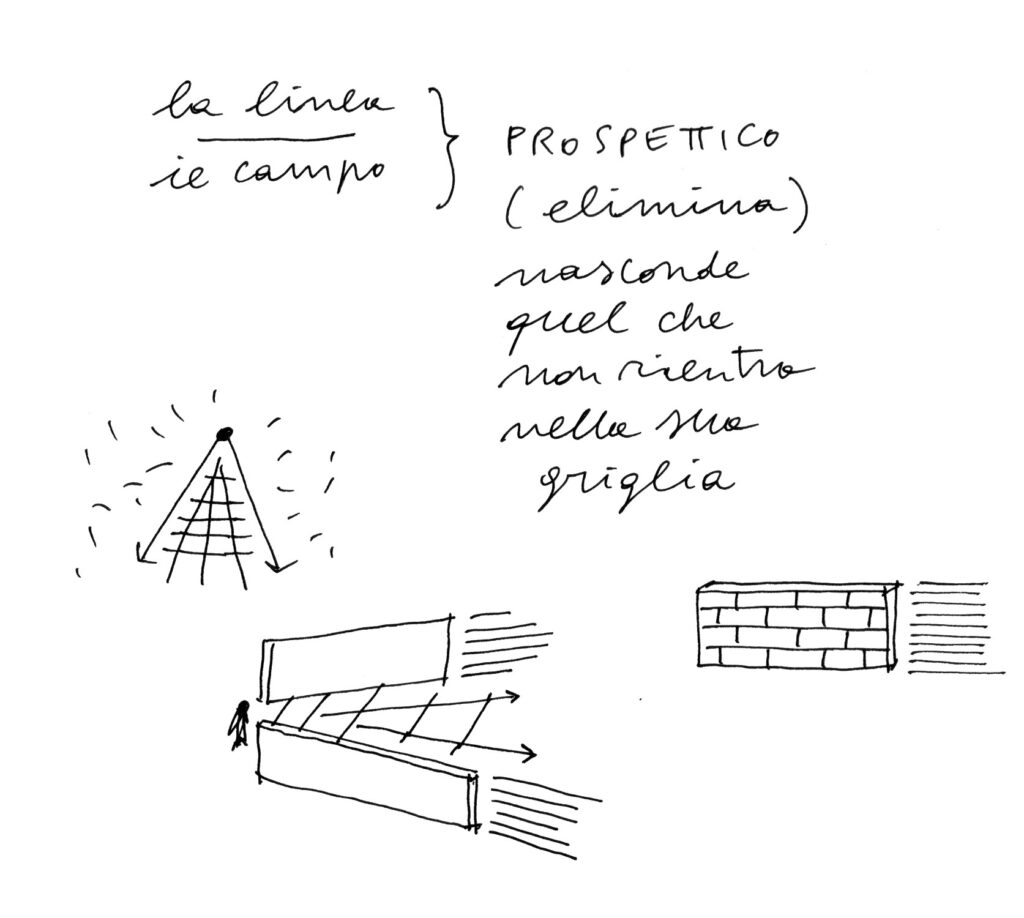 la linea
il campo
PROSPETTICO
(elimina)
nasconde
quel che
non rientra
nella sua
griglia